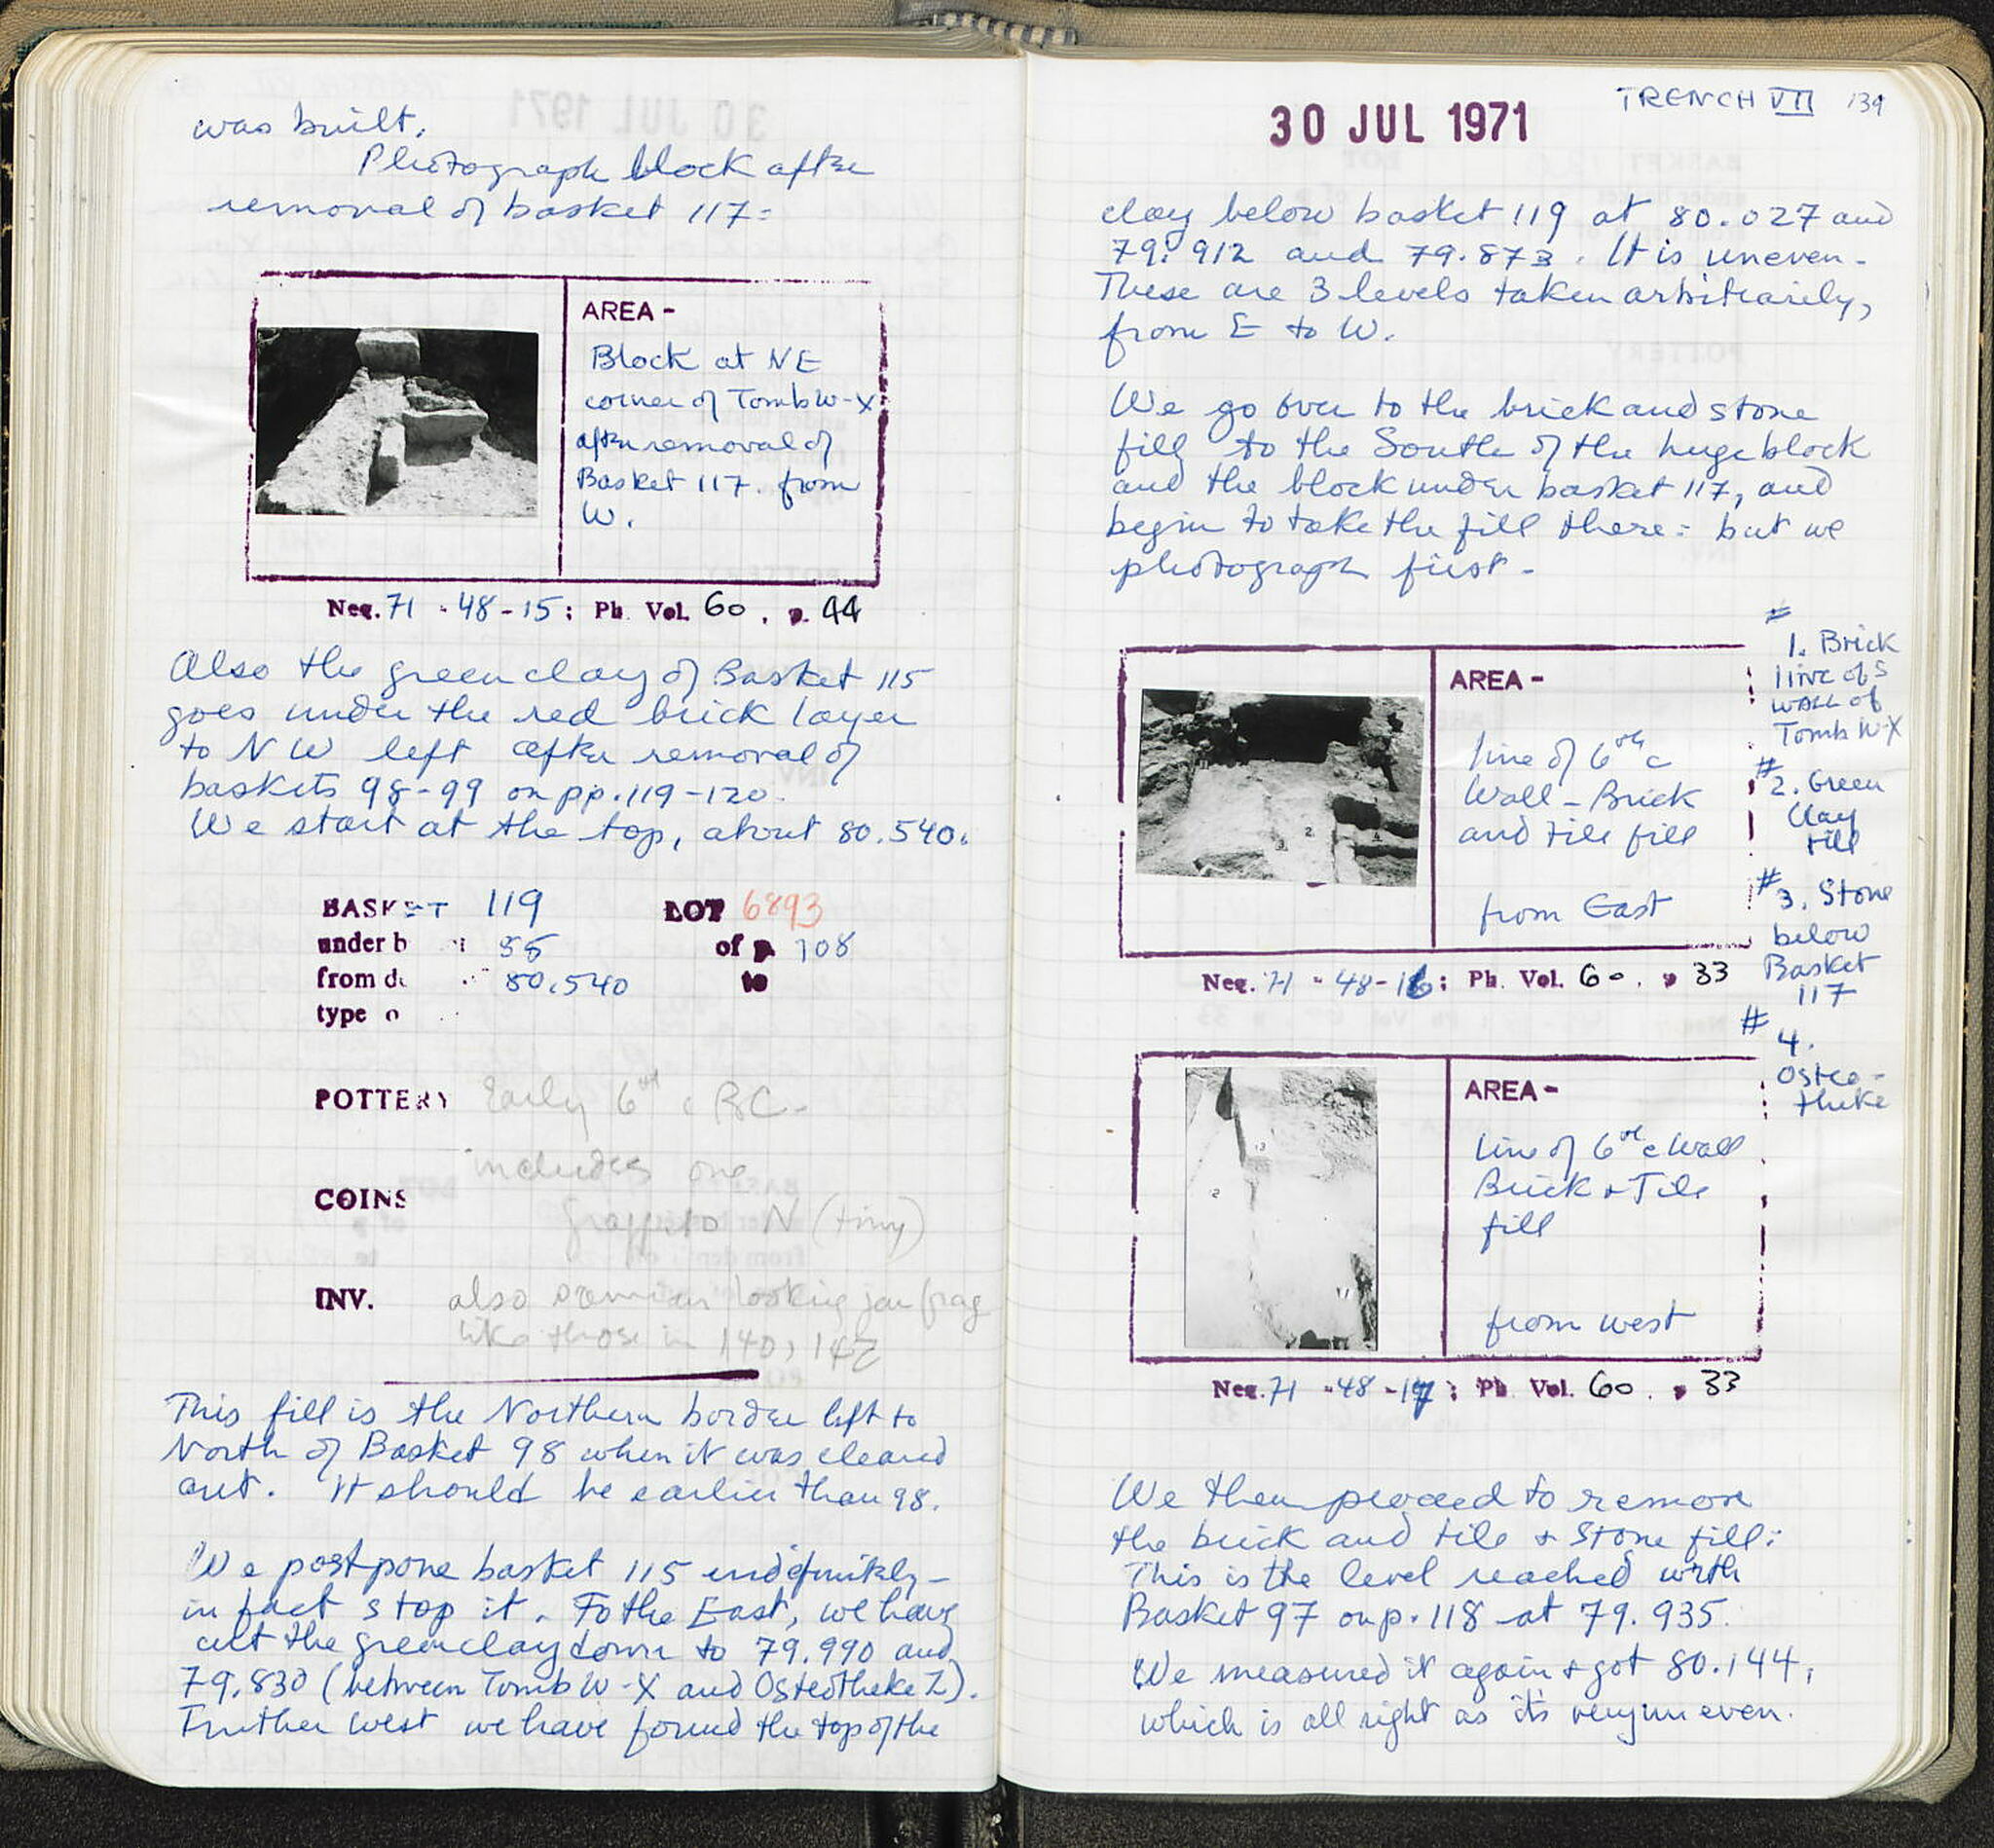 was built.
Photograph block after
removal of basket 117:
AREA -
Block at NE
corner of Tomb W-X
after removal of
Basket 117. from
W.
Neg. 71 - 48 - 15 ; Ph. Vol. 60 , p. 44
Also the green clay of Basket 115
goes under the red brick layer
to NW left after removal of
baskets 98-99 on pp. 119-120.
We start at the top, about 80.540.
BASKET 119 LOT 6893
under b 55 of p. 108
from de 80.540 to
type o
POTTERY Early 6th c BC -
includes one
COINS
graffito N (tiny)
INV. also looking jar frag
like those in 140, 142
This fill is the Northern border left to
North of Basket 98 when it was cleared
out. It should be earlier than 98.
We postpone basket 115 indefinitely -
in fact stop it. To the East, we have
cut the green clay down to 79.990 and
79.830 (between Tomb W-X and Osteotheke Z).
Further West we have found the top of the
TRENCH VII 139
30 JUL 1971
clay below basket 119 at 80.027 and
79.912 and 79.873. It is uneven -
These are 3 levels taken arbitrarily,
from E to W.
We go over to the brick and stone
fill to the South of the huge block
and the block under basket 117, and
begin to take the fill there: but we
photograph first -
AREA -
line of 6th c
Wall - Brick
and tile fill
from East
Neg. 71 - 48 - 16 ; Ph. Vol. 60 . p 33
#
1. Brick
line of S
WALL of
Tomb W-X
#
2. Green
Clay
fill
#
3. Stone
below
Basket
117
#
4.
Osteo-
theke
AREA -
line of 6th c Wall
Brick + Tile
fill
from west
Neg. 71 - 48 - 17 ; Ph. Vol. 60 . p 33
We then proceed to remove
the brick and tile + Stone fill:
This is the level reached with
Basket 97 on p. 118 at 79.935.
We measured it again + got 80.144,
which is all right as it's very uneven.